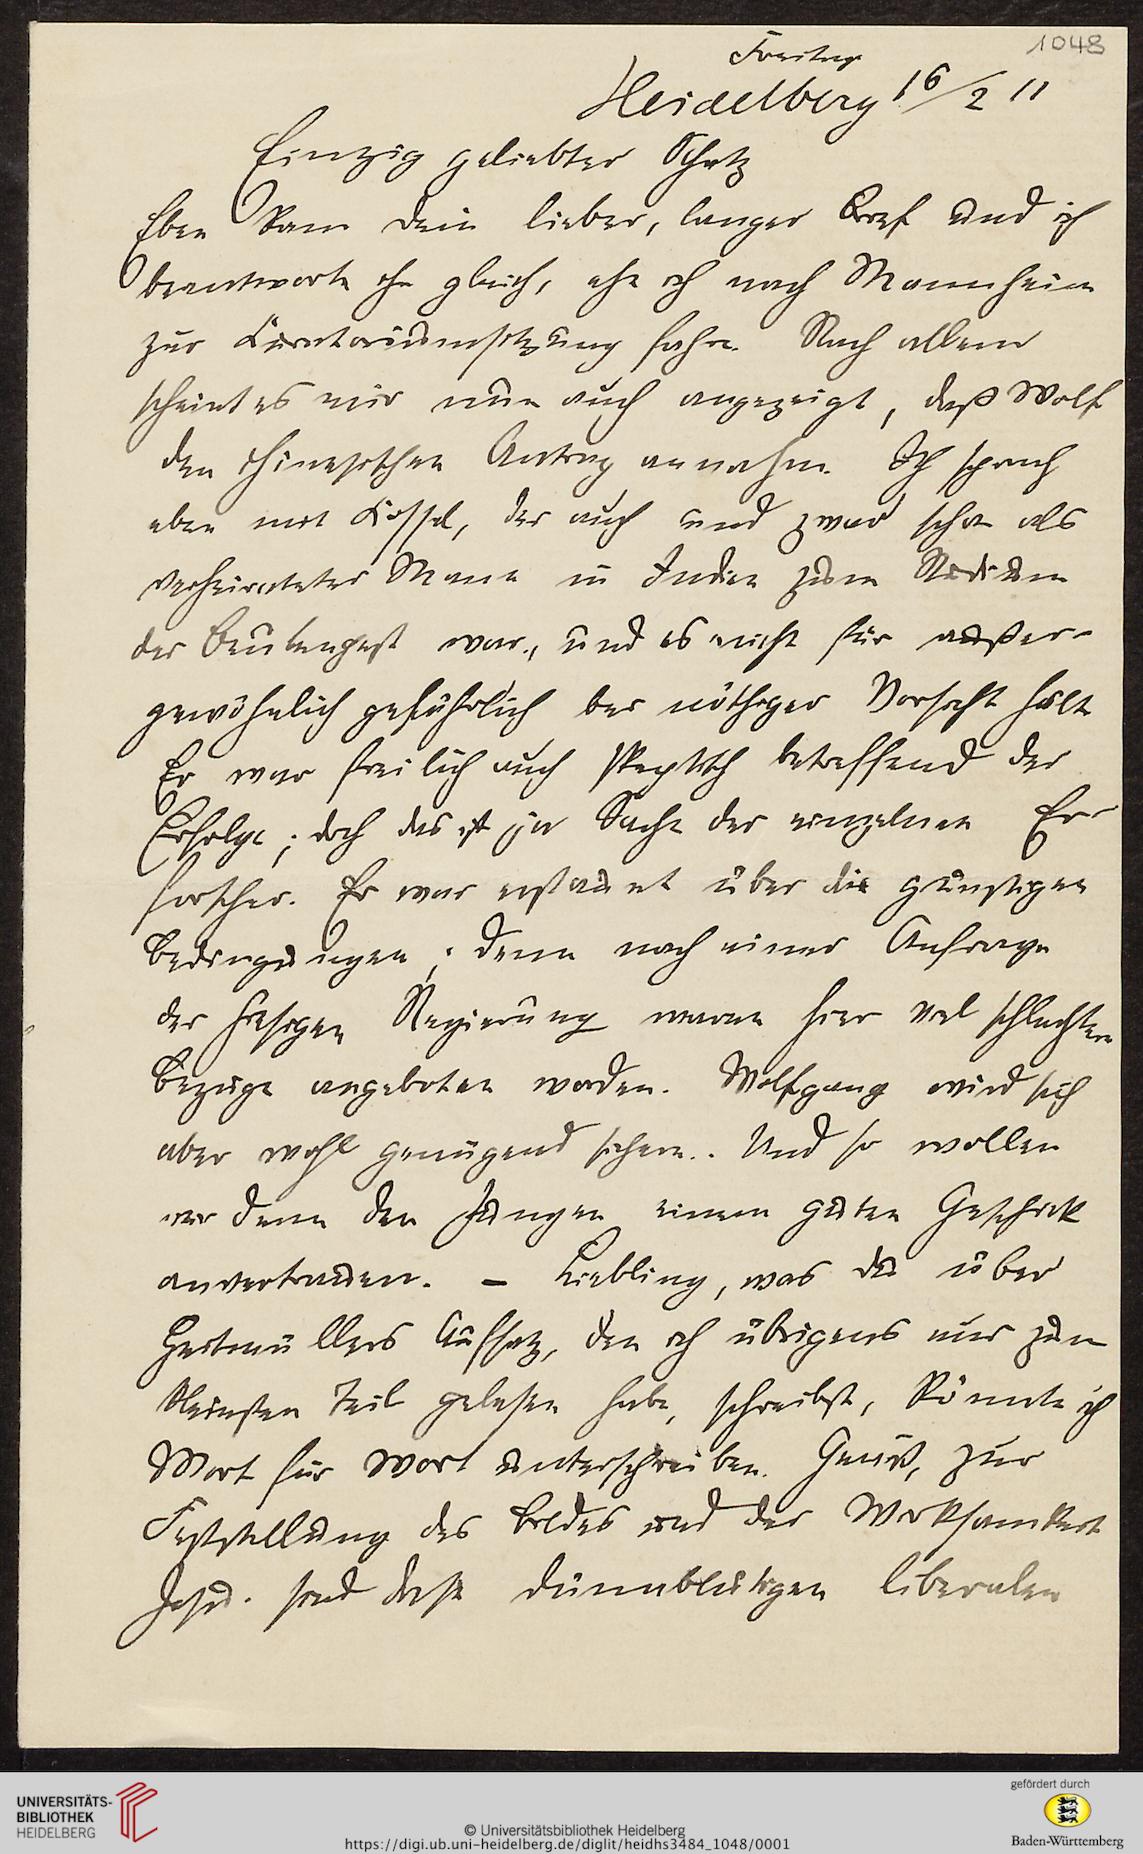 1048
Freitag
Heidelberg 16/2 11
Einzig geliebter Schatz
Eben kam dein lieber, langer Brief und ich
beantworte ihn gleich, ehe ich nach Mannheim
zur Curatoriumsitzung fahre. Nach allem
scheint es mir nun auch angezeigt, daß Wolf
den chinesischen Antrag annahm. Ich sprach
eben mit Kossel, der auch und zwar schon als
verheirateter Mann in Indien zum Studium
der Beulenpest war, und es nicht für außer-
gewöhnlich gefährlich bei nöthiger Vorsicht hält
Er war freilich auch skeptisch betreffend der
Erfolge; doch das ist ja Sache der einzelnen Er-
forscher. Er war erstaunt über die günstigen
Bedingungen; denn nach einer Anfrage
der hiesigen Regierung waren hier viel schlechtere
Bezüge angeboten worden. Wolfgang wird sich
aber wohl genügend sichern. Und so wollen
wir denn den Jungen einem guten Geschick
anvertrauen. – Liebling, was du über
Aufsatz, den ich übrigens nur zum
kleinsten Teil gelesen habe, schreibst, könnte ich
Wort für Wort unterschreiben. Gewiß, zur
Feststellung des Bildes und der Wirksamkeit
Jesu sind diese dünnblütigen liberalen
UNIVERSITÄTS-
BIBLIOTHEK
HEIDELBERG
© Universitätsbibliothek Heidelberg
https://digi.ub.uni-heidelberg.de/diglit/heidhs3484_1048/0001
gefördert durch
Baden-Württemberg